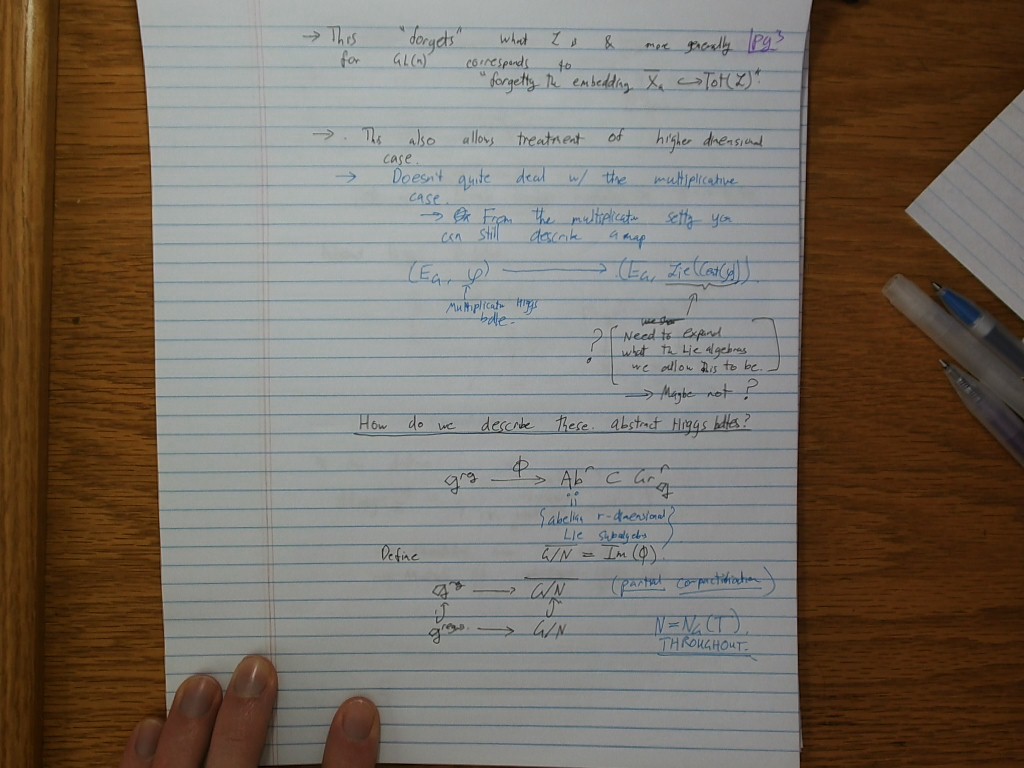 → This "forgets" what L is & more generally Pg 3
for GL(n) corresponds to
"forgetting the embedding X̄ₐ ↪ Tot(L)".
→ . This also allows treatment of higher dimensional
case.
→ Doesn't quite deal w/ the multiplicative
case.
→ From the multiplicative setting you
can still describe a map
(E_G, φ) ⟶ (E_G, Lie(Cent(φ))).
↑
Multiplicative Higgs
bdle.
? [ Need to expand
what the Lie algebras
we allow this to be. ]
→ Maybe not ?
How do we describe these abstract Higgs bdles?
g^reg —Φ→ Ab^r ⊂ Gr^r_g
{abelian r-dimensional
Lie subalgebras}
Define G/N = Im(Φ).
g^reg ⟶ G/N (partial compactification)
g^reg.ss. ⟶ G/N N = N_G(T).
THROUGHOUT.